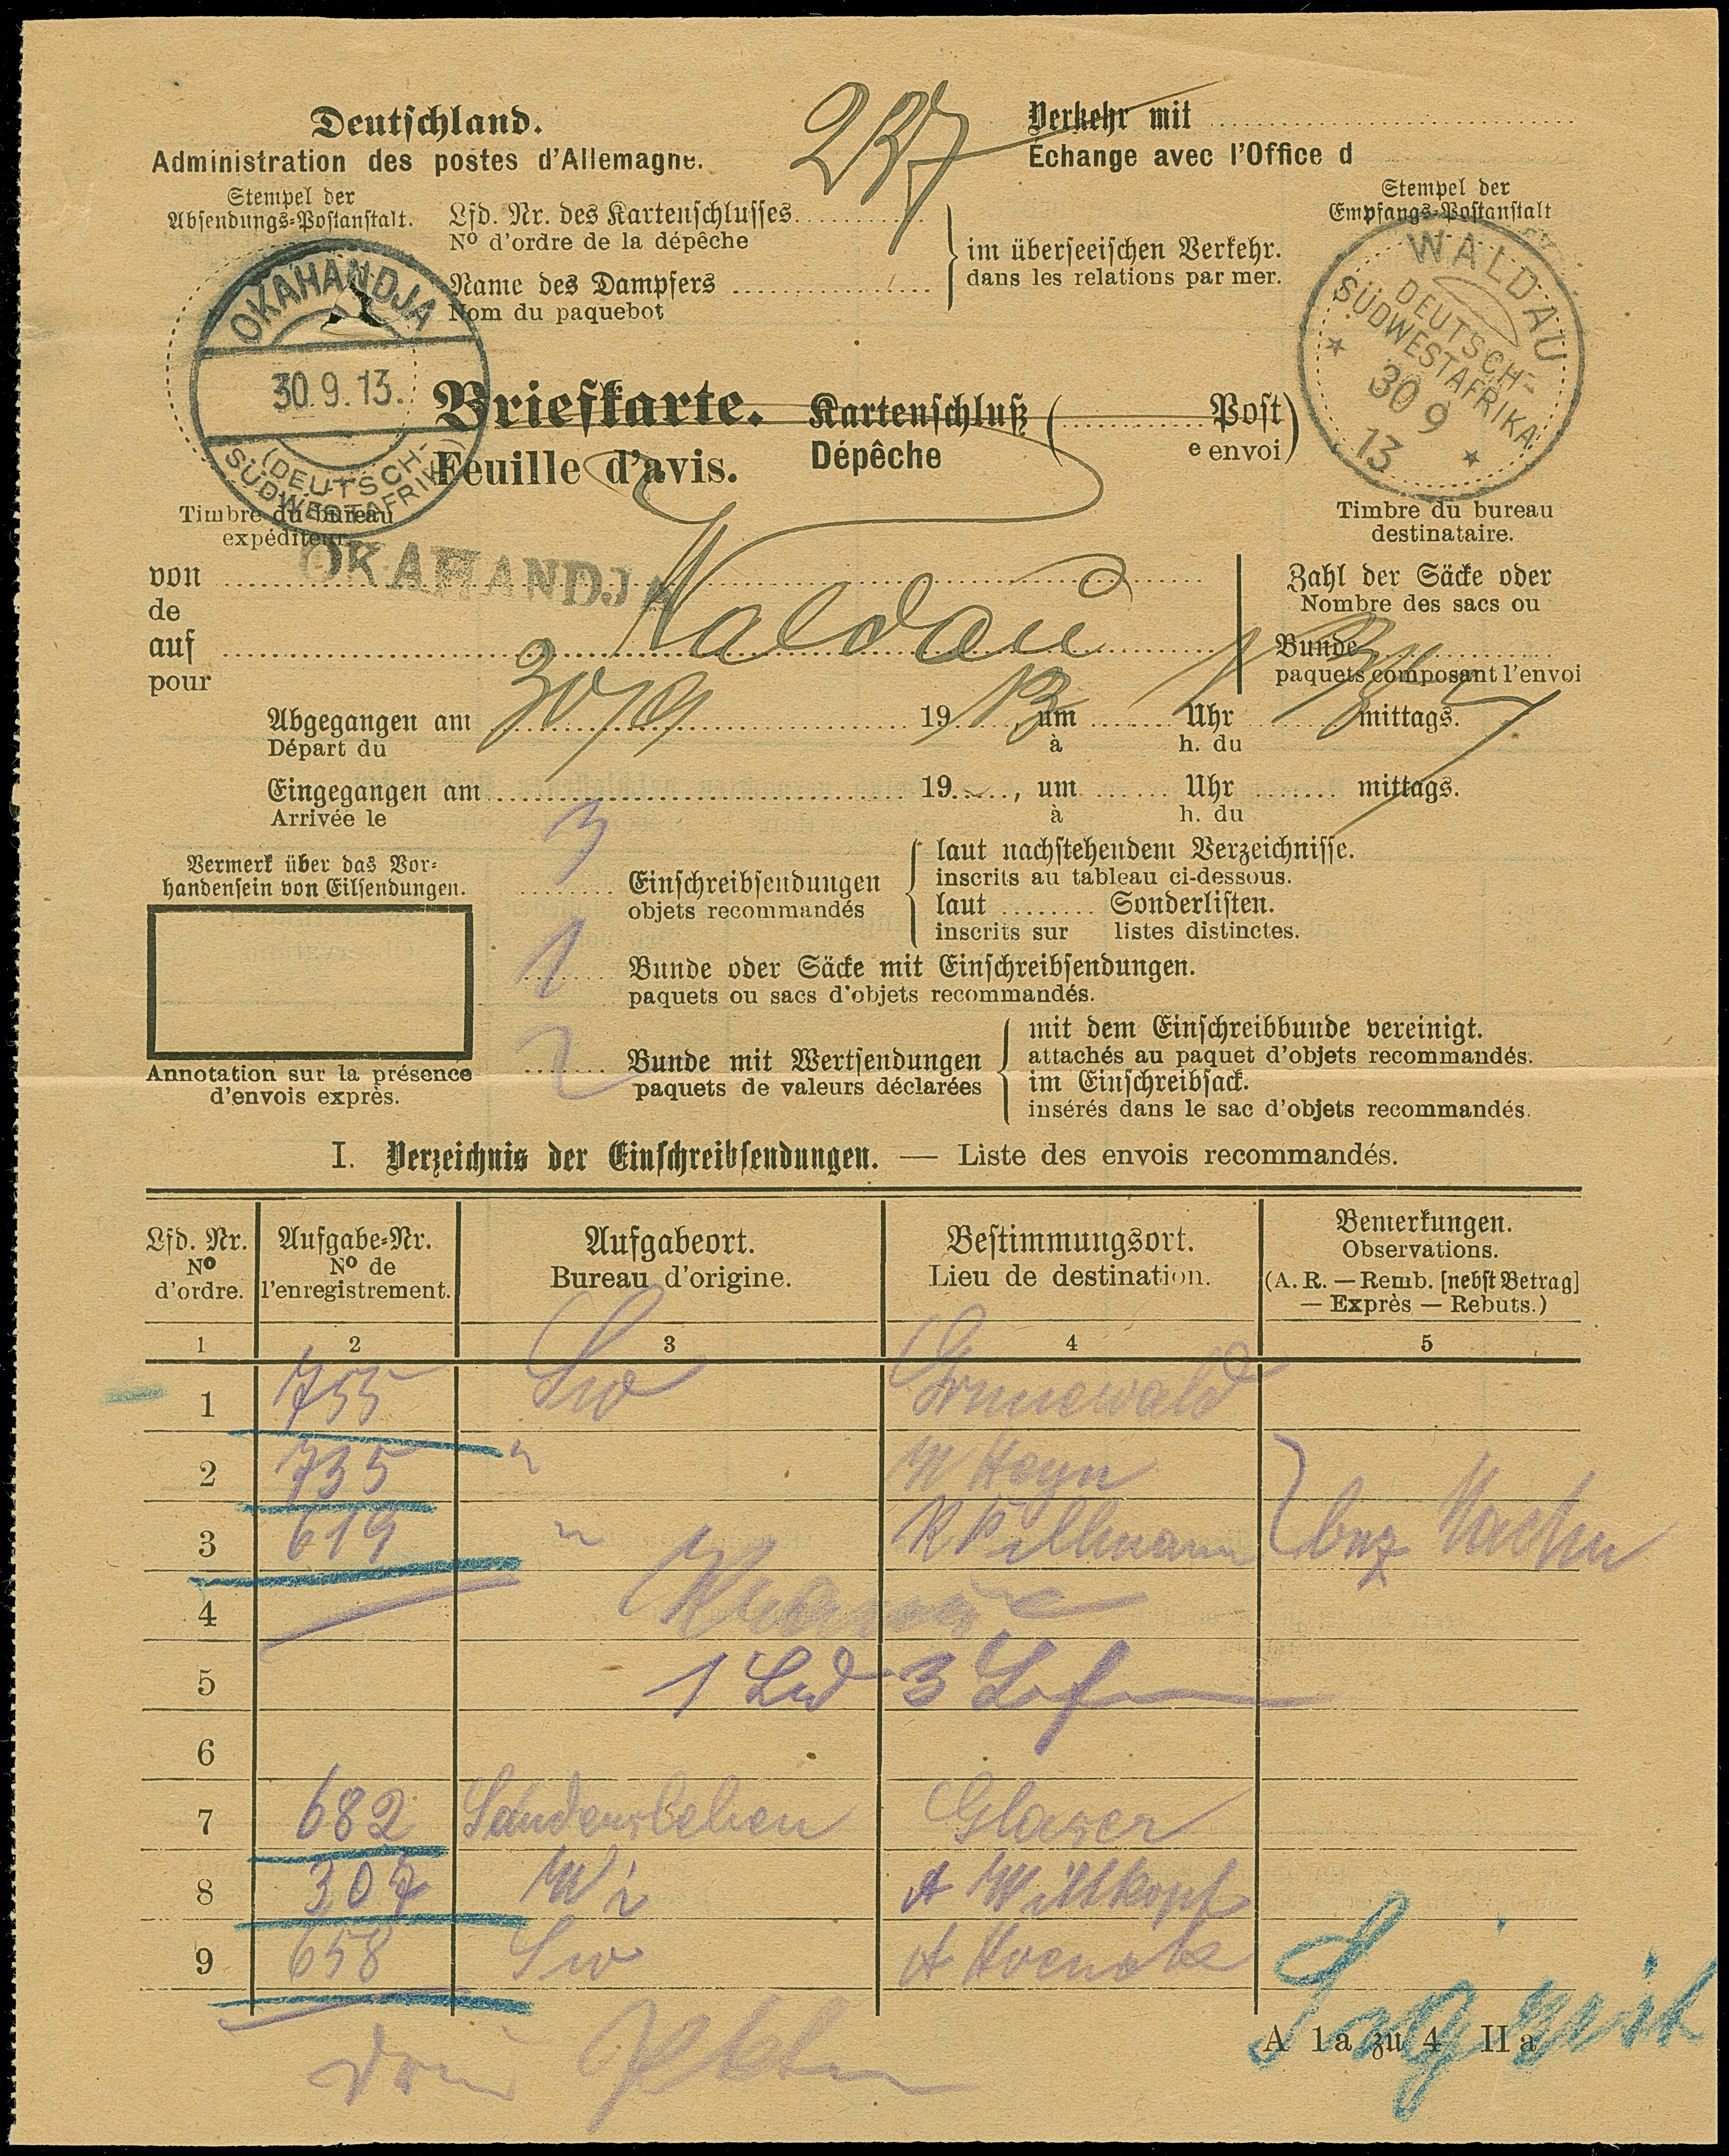 Deutschland.
Administration des postes d'Allemagne.
237
Verkehr mit
Echange avec l'Office d
Stempel der
Absendungs-Postanstalt.
Lfd. Nr. des Kartenschlusses
Nº d'ordre de la dépêche
Name des Dampfers
Nom du paquebot
im überseeischen Verkehr.
dans les relations par mer.
Stempel der
Empfangs-Postanstalt
OKAHANDJA
30.9.13.
(DEUTSCH-
SÜDWESTAFRIKA)
WALDAU
DEUTSCH-
SÜDWESTAFRIKA
30 9
13
Briefkarte. Kartenschluß ( Post)
Feuille d'avis. Dépêche e envoi
Timbre du bureau
expéditeur.
Timbre du bureau
destinataire.
von OKAHANDJA
de
auf Waldau
pour
Zahl der Säcke oder
Nombre des sacs ou
Bunde
paquets composant l'envoi
Abgegangen am 30/9 1913 um Uhr mittags.
Départ du à h. du
Eingegangen am 19 , um Uhr mittags.
Arrivée le à h. du
Vermerk über das Vor-
handensein von Eilsendungen.
Annotation sur la présence
d'envois exprès.
3 Einschreibsendungen
objets recommandés
laut nachstehendem Verzeichnisse.
inscrits au tableau ci-dessous.
laut Sonderlisten.
inscrits sur listes distinctes.
1 Bunde oder Säcke mit Einschreibsendungen.
paquets ou sacs d'objets recommandés.
Bunde mit Wertsendungen
paquets de valeurs déclarées
mit dem Einschreibbunde vereinigt.
attachés au paquet d'objets recommandés.
im Einschreibsack.
insérés dans le sac d'objets recommandés.
I. Verzeichnis der Einschreibsendungen. — Liste des envois recommandés.
Lfd. Nr.
Nº
d'ordre.
Aufgabe-Nr.
Nº de
l'enregistrement.
Aufgabeort.
Bureau d'origine.
Bestimmungsort.
Lieu de destination.
Bemerkungen.
Observations.
(A. R. — Remb. [nebst Betrag]
— Exprès — Rebuts.)
1 2 3 4 5
1 755 Sw Grunewald
2 735 " W Heyn
3 619 " R Pillmann
4
5
6
7 682 Sandersleben Glaser
8 307 Wi A Wittkopf
9 658 Sw A
A 1a zu 4 II a